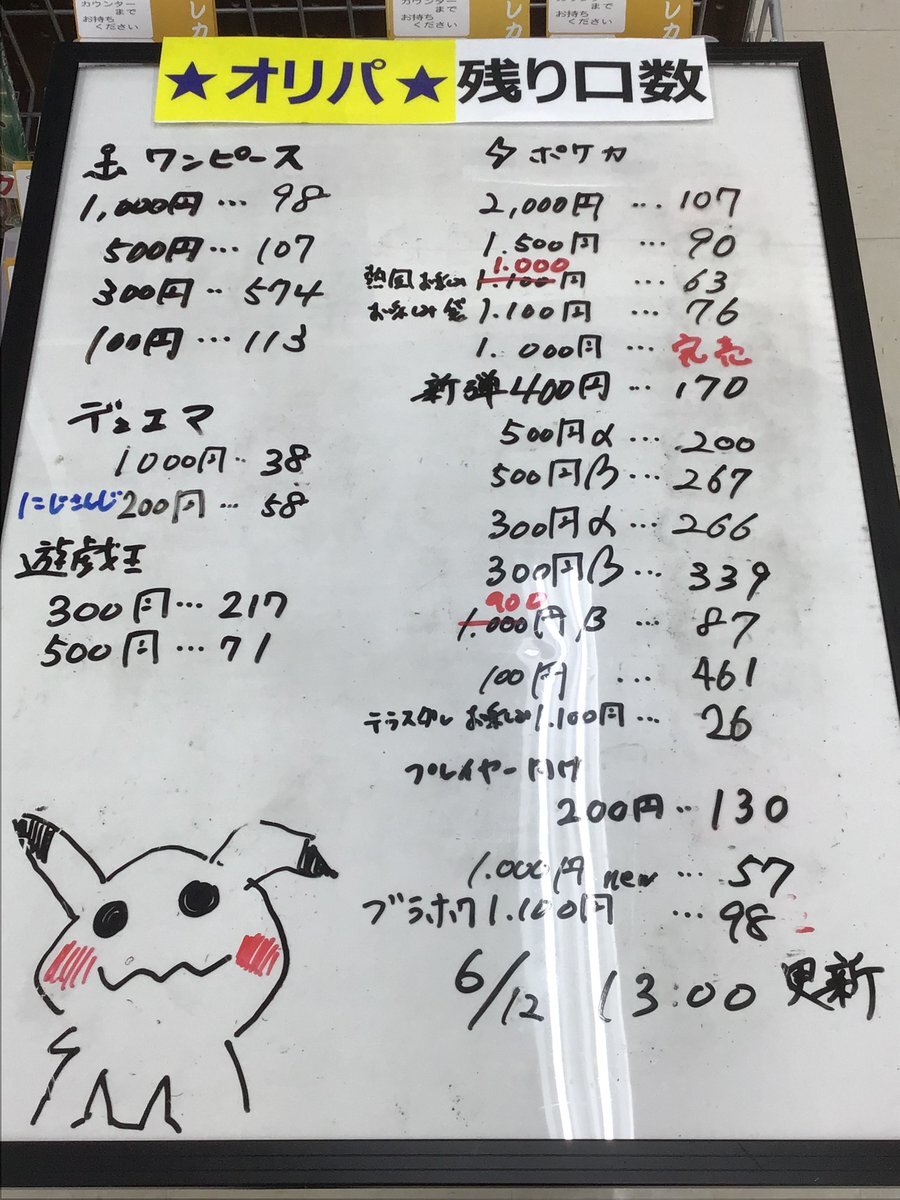 カウンター
まで
お持ち
ください
レカ
カウンター
まで
お持ち
ください
レカ
お持ち
ください
レカ
★オリパ★残り口数
ワンピース
1,000円…98
500円…107
300円‥574
100円…113
デュエマ
1000円‥38
にじさんじ200円…58
遊戯王
300円…217
500円…71
ポケカ
2,000円…107
1.500円…90
1.000
熱風お楽しみ1.100円…63
お楽しみ袋1.100円…76
1.000円…完売
新弾400円…170
500円α…200
500円β…267
300円α…266
300円β…339
900
1.000円β…87
100円…461
テラスタルお楽しみ1.100円…26
プレイヤー向け
200円‥130
1.000円new…57
ブラホワ1.100円…98
6/12 13:00更新